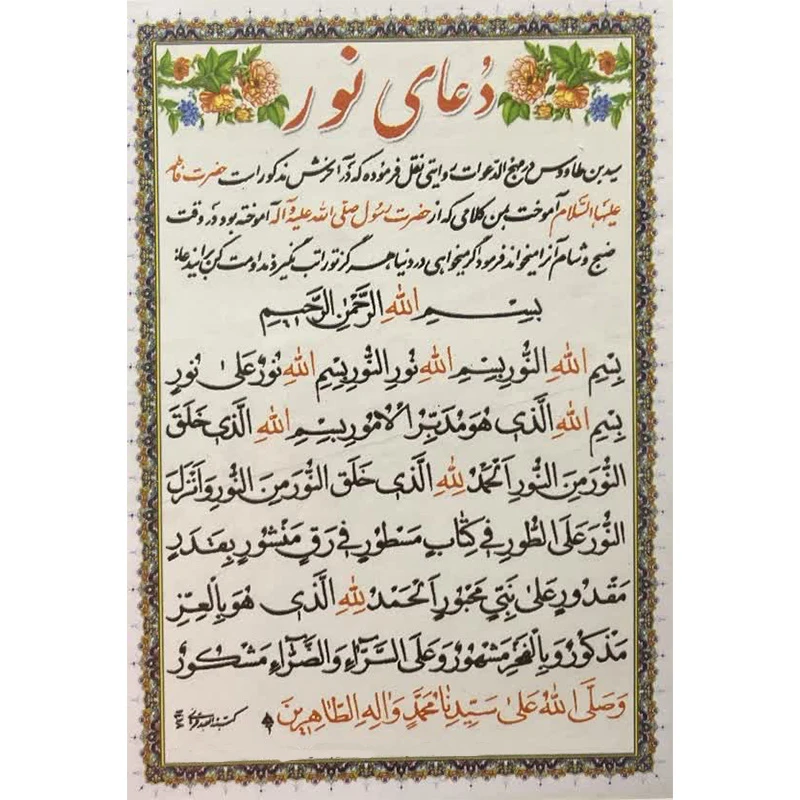 دُعای نور
سید بن طاووس در مهج الدعوات روایتی نقل فرموده که در آخرش مذکور است حضرت فاطمه
علیها السلام آموخت بمن کلامی که از حضرت رسول صلی الله علیه و آله آموخته بود و در وقت
صبح و شام آنرا میخواند فرمود اگر میخواهی در دنیا هرگز تو را تب نگیرد مداومت کن بر این دعا:
بِسْمِ اللهِ الرَّحْمٰنِ الرَّحیمِ
بِسْمِ اللهِ النُّورِ بِسْمِ اللهِ نُورِ النُّورِ بِسْمِ اللهِ نُورٌ عَلیٰ نُورٍ
بِسْمِ اللهِ الَّذی هُوَ مُدَبِّرُ الْاُمُورِ بِسْمِ اللهِ الَّذی خَلَقَ
النُّورَ مِنَ النُّورِ اَلْحَمْدُ لِلّٰهِ الَّذی خَلَقَ النُّورَ مِنَ النُّورِ وَ اَنْزَلَ
النُّورَ عَلَی الطُّورِ فی کِتابٍ مَسْطُورٍ فی رَقٍّ مَنْشُورٍ بِقَدَرٍ
مَقْدُورٍ عَلیٰ نَبِیٍّ مَحْبُورٍ اَلْحَمْدُ لِلّٰهِ الَّذی هُوَ بِالْعِزِّ
مَذْکُورٌ وَ بِالْفَخْرِ مَشْهُورٌ وَ عَلَی السَّرّآءِ وَ الضَّرّآءِ مَشْکُورٌ
وَ صَلَّی اللهُ عَلیٰ سَیِّدِنا مُحَمَّدٍ وَ الِهِ الطّاهِرینَ